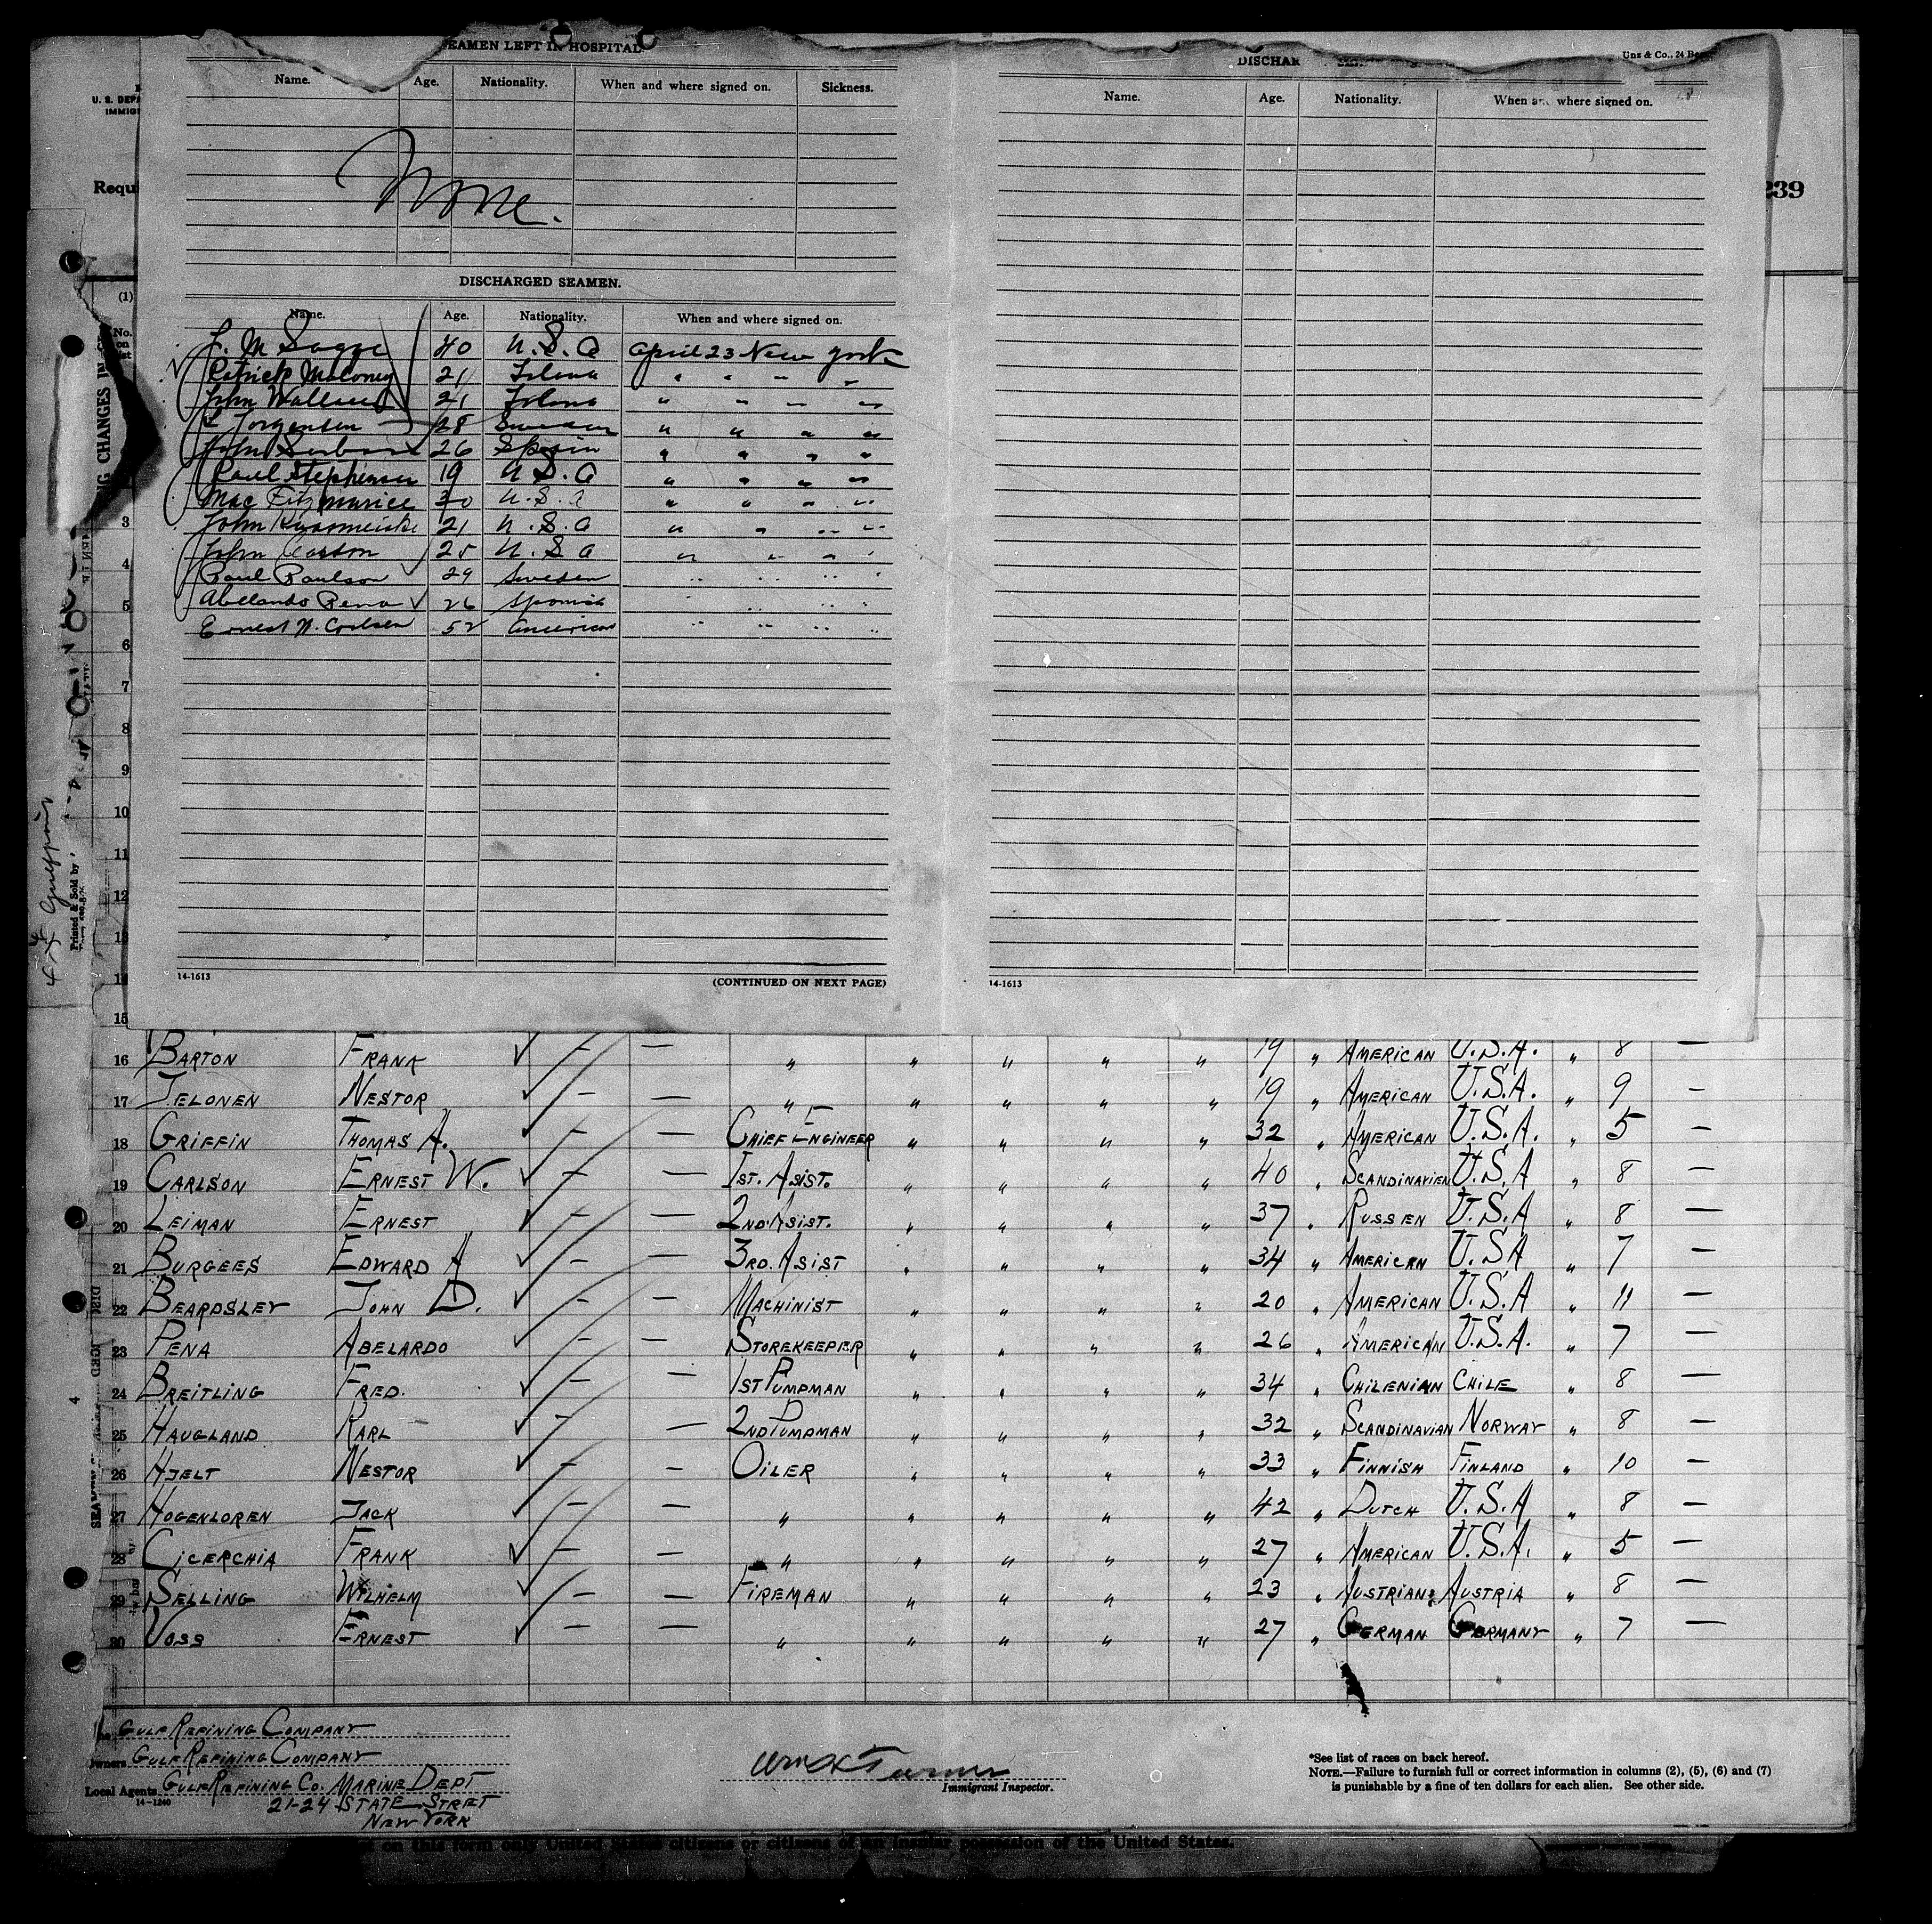 SEAMEN LEFT IN HOSPITAL
Name. Age. Nationality. When and where signed on. Sickness.
None.
DISCHARGED SEAMEN.
Name. Age. Nationality. When and where signed on.
40 U.S.A April 23 New York
Patrick Maloney 21 " " " "
John 21 " " " "
Jorgensen 28 Sweden " " " "
John 26 Spain " " " "
Paul Stephenson 19 U.S.A " " " "
Mac Fitzmaurice 30 U.S.A " " " "
John 21 U.S.A " " " "
John 25 U.S.A " " " "
Paul Paulson 29 Sweden " " " "
Pena 26 Spanish " " " "
Ernest 52 American " " " "
14-1613 (CONTINUED ON NEXT PAGE)
Uns & Co., 24
DISCHAR
Name. Age. Nationality. When and where signed on.
14-1613
U. S. DEPA
IMMIG
Requi
239
(1)
No.
on
3
4
5
6
7
8
9
10
11
12
15
Printed & Sold by
16 BARTON FRANK ✓ — — " " " " " 19 " AMERICAN U.S.A. " 8 —
17 NESTOR ✓ — — " " " " " 19 " AMERICAN U.S.A. " 9 —
18 GRIFFIN THOMAS A. ✓ — — CHIEF ENGINEER " " " " 32 " AMERICAN U.S.A. " 5 —
19 CARLSON ERNEST W. ✓ — — 1ST. ASIST. " " " " 40 " SCANDINAVIEN U.S.A " 8 —
20 LEIMAN ERNEST ✓ — — 2ND. ASIST. " " " " 37 " RUSSEN U.S.A " 8 —
21 BURGEES EDWARD A ✓ — — 3RD. ASIST " " " " 34 " AMERICAN U.S.A " 7 —
22 BEARDSLEY JOHN D. ✓ — — MACHINIST " " " " 20 " AMERICAN U.S.A " 11 —
23 PENA ABELARDO ✓ — — STOREKEEPER " " " " 26 " AMERICAN U.S.A. " 7 —
24 BREITLING FRED. ✓ — — 1ST PUMPMAN " " " " 34 " CHILENIAN CHILE " 8 —
25 HAUGLAND KARL ✓ — — 2ND PUMPMAN " " " " 32 " SCANDINAVIAN NORWAY " 8 —
26 HJELT NESTOR ✓ — — OILER " " " " 33 " FINNISH FINLAND " 10 —
27 HOGENLOREN JACK ✓ — — " " " " " 42 " DUTCH U.S.A " 8 —
28 CICERCHIA FRANK ✓ — — " " " " " 27 " AMERICAN U.S.A. " 5 —
29 SELLING WILHELM ✓ — — FIREMAN " " " " 23 " AUSTRIAN AUSTRIA " 8 —
30 VOSS ERNEST ✓ — — " " " " " 27 " GERMAN GERMANY " 7 —
GULF REFINING COMPANY
owners GULF REFINING COMPANY
Local Agents GULF REFINING CO. MARINE DEPT
14-1240
21-24 STATE STRET
NEW YORK
Turner
Immigrant Inspector.
*See list of races on back hereof.
NOTE.—Failure to furnish full or correct information in columns (2), (5), (6) and (7)
is punishable by a fine of ten dollars for each alien. See other side.
on this form only United States citizens or citizens of an insular possession of the United States.